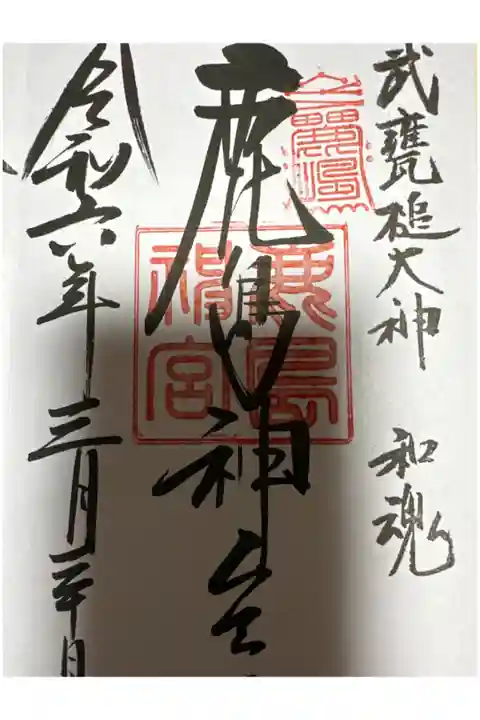 武甕槌大神 和魂
鹿島神宮
鹿島
神宮
令和六年三月二十日